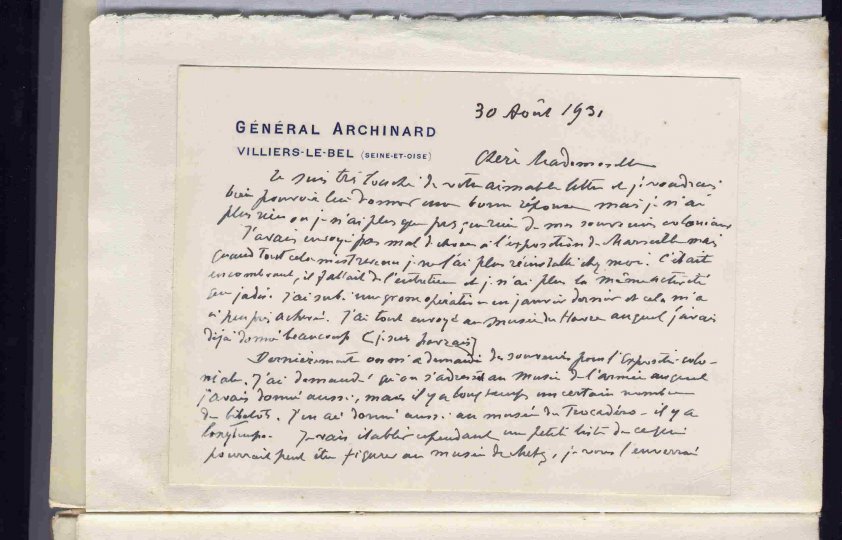 30 Août 1931
GÉNÉRAL ARCHINARD
VILLIERS-LE-BEL (SEINE-ET-OISE)
Chère Mademoiselle
Je suis très touché de votre aimable lettre et je voudrais
bien pouvoir lui donner une bonne réponse mais je n'ai
plus rien ou je n'ai plus que presque rien de mes souvenirs coloniaux
J'avais envoyé pas mal de choses à l'exposition de Marseille mais
quand tout cela m'est revenu je ne l'ai plus réinstallé chez moi. C'était
encombrant, il fallait de l'entretien et je n'ai plus la même activité
que jadis. J'ai subi une grosse opération en janvier dernier et cela m'a
à peu près achevé. J'ai tout envoyé au musée du Havre auquel j'avais
déjà donné beaucoup (je suis havrais)
Dernièrement on m'a demandé des souvenirs pour l'Exposition colo-
niale. J'ai demandé qu'on s'adresse au musée de l'armée auquel
j'avais donné aussi, mais il y a longtemps un certain nombre
de bibelots. J'en ai donné aussi au musée du Trocadéro - il y a
longtemps. Je vais établir cependant une petite liste de ce qui
pourrait peut être figurer au musée de Metz, je vous l'enverrai